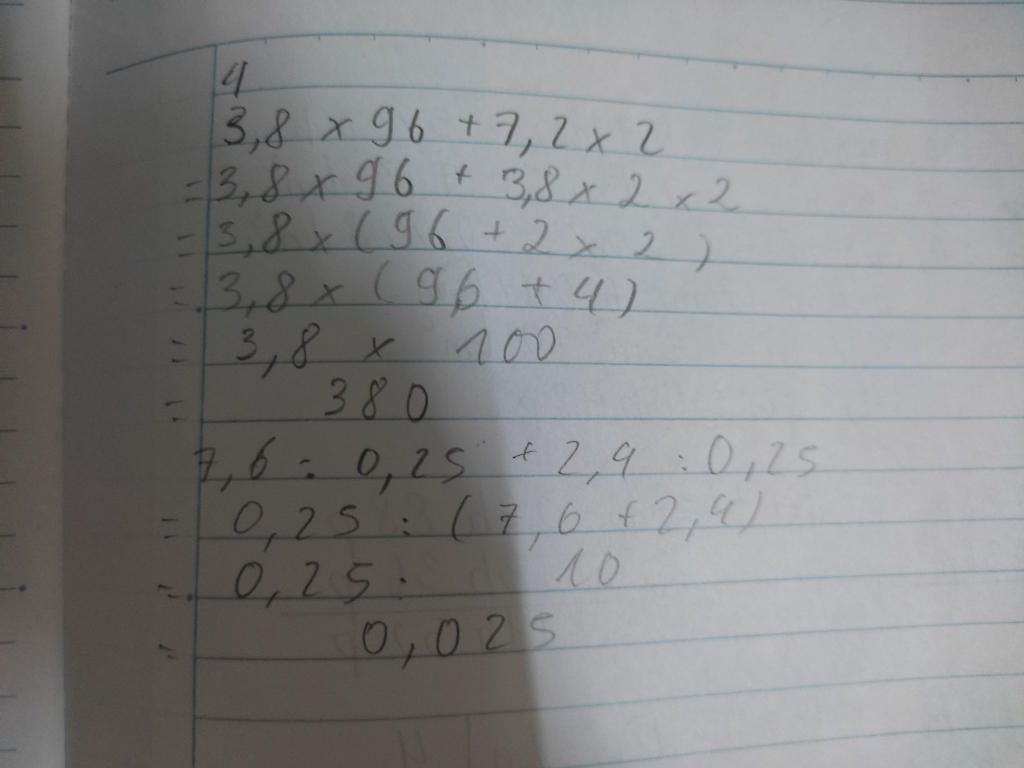 4
3,8 × 96 + 7,2 × 2
= 3,8 × 96 + 3,8 × 2 × 2
= 3,8 × (96 + 2 × 2)
= 3,8 × (96 + 4)
= 3,8 × 100
= 380
7,6 : 0,25 + 2,4 : 0,25
= 0,25 : (7,6 + 2,4)
= 0,25 : 10
= 0,025